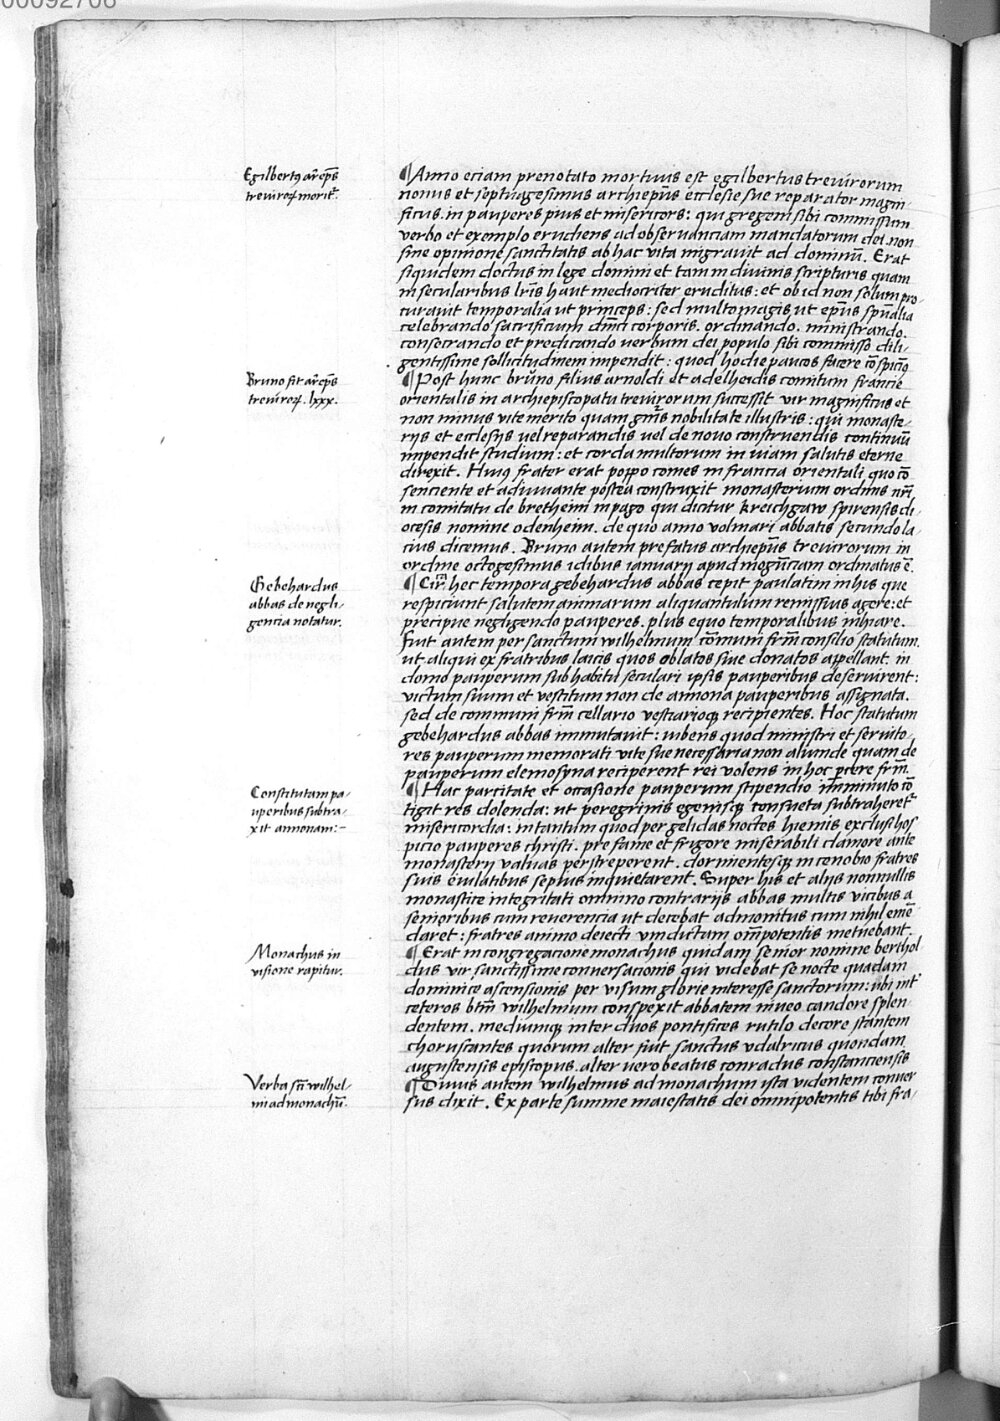 00092706
Egilbertꝰ arēps
treviroꝝ morit᷑.
¶Anno eciam prenotato mortuus est egilbertus trevirorum
nonus et septuagesimus archiep̄us ecclesie sue reparator magni-
ficus. in pauperes pius et misericors: qui gregem sibi commissum
verbo et exemplo erudiens ad observanciam mandatorum dei. non
sine opinione sanctitatis ab hac vita migravit ad dominū. Erat
siquidem doctus in lege domini et tam in divinis scripturis quam
in secularibus lr̄is haut mediocriter eruditus: et ob id non solum pro-
curavit temporalia ut princeps: sed multo magis ut ep̄us sp̄ualia
celebrando sacrificium dn̄ici corporis. ordinando. ministrando.
consecrando et predicando verbum dei populo sibi commisso dili-
gentissime sollicitudinem impendit: quod hodie paucos facere cōspicimꝰ
Bruno fit arēps
treviroꝝ. lxxx.
¶Post hunc brūno filius arnoldi et adelheidis comitum francie
orientalis in archiepiscopatu trevirorum successit vir magnificus et
non minus vite merito quam gn̄is nobilitate illustris: qui monaste-
rijs et ecclesijs vel reparandis vel de novo construendis continuū
impendit studium: et corda multorum in viam salutis eterne
direxit. Huiꝰ frater erat poppo comes in francia orientali quo cō
senciente et adiuvante postea construxit monasterium ordinis nr̄i
in comitatu de bretheim in pago qui dicitur kreichgaw spirensis di-
ocesis nomine odenheim. de quo anno volmari abbatis secundo la-
cius dicemus. Bruno autem prefatus archiep̄us trevirorum in
ordine octogesimus idibus ianuarij apud magūciam ordinatus ē.
Gebehardus
abbas de negli-
gencia notatur.
¶Circa hec tempora gebehardus abbas cepit paulatim in his que
respiciunt salutem animarum aliquantulum remissius agere: et
precipue negligendo pauperes. plus equo temporalibus inhiare.
Fuit autem per sanctum wilhelmum cōmuni fr̄m consilio statutum.
ut aliqui ex fratribus laicis quos oblatos sive donatos appellant. in
domo pauperum sub habitu seculari ipsis pauperibus deservirent:
victum suum et vestitum non de annona pauperibus assignata.
sed de communi fr̄m cellario vestiarioqꝫ recipientes. Hoc statutum
gebehardus abbas immutavit: iubens quod ministri et servito-
res pauperum memorati vite sue necessaria non aliunde quam de
pauperum elemosyna reciperent rei volens in hoc p̄cere fr̄m.
Constitutam pa-
uperibus subtra-
xit annonam:-
¶Hac parcitate et occasione pauperum stipendio imminuto cō
tigit res dolenda: ut peregrinis egenisqꝫ consueta subtraheret᷑
misericordia: in tantum quod per gelidas noctes hiemis exclusi hos
picio pauperes christi. pre fame et frigore miserabili clamore ante
monasterij valvas perstreperent. dormientesqꝫ in cenobio fratres
suis eiulatibus sepius inquietarent. Super his et alijs nonnullis
monastice integritati omnino contrarijs abbas multis vicibus a
senioribus cum reverencia ut decebat admonitus cum nihil emē
daret: fratres animo deiecti vindictam om̄ipotentis metuebant.
Monachus in
visione rapitur.
¶Erat in congregacione monachus quidam senior nomine berthol-
dus vir sanctissime conversacionis qui videbat se nocte quadam
dominice ascensionis per visum glorie interesse sanctorum: ubi int̄
ceteros btm̄ wilhelmum conspexit abbatem niveo candore splen-
dentem. mediumqꝫ inter duos pontifices rutilo decore stantem
choruscantes quorum alter fuit sanctus udalricus quondam
augustensis episcopus. alter vero beatus conradus constanciensis
Verba sct̄i wilhel-
mi ad monachū.
¶Divus autem wilhelmus ad monachum ista videntem conver
sus dixit. Ex parte summe maiestatis dei omnipotentis tibi fra-